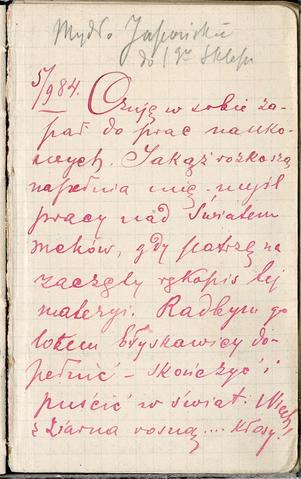 Mydło Japońskie
do 1go Sklepu
5/9 84. Czuję w sobie za-
pał do prac nauko-
wych. Jakąż rozkoszą
napełnia mię - myśl
pracy nad Światem
mchów, gdy patrzę na
zaczęty rękopis tej
materyi. Radbym go
lotem błyskawicy do-
pełnić - skończyć i
puścić w świat. Niech
z ziarna rosną.... Kłosy.